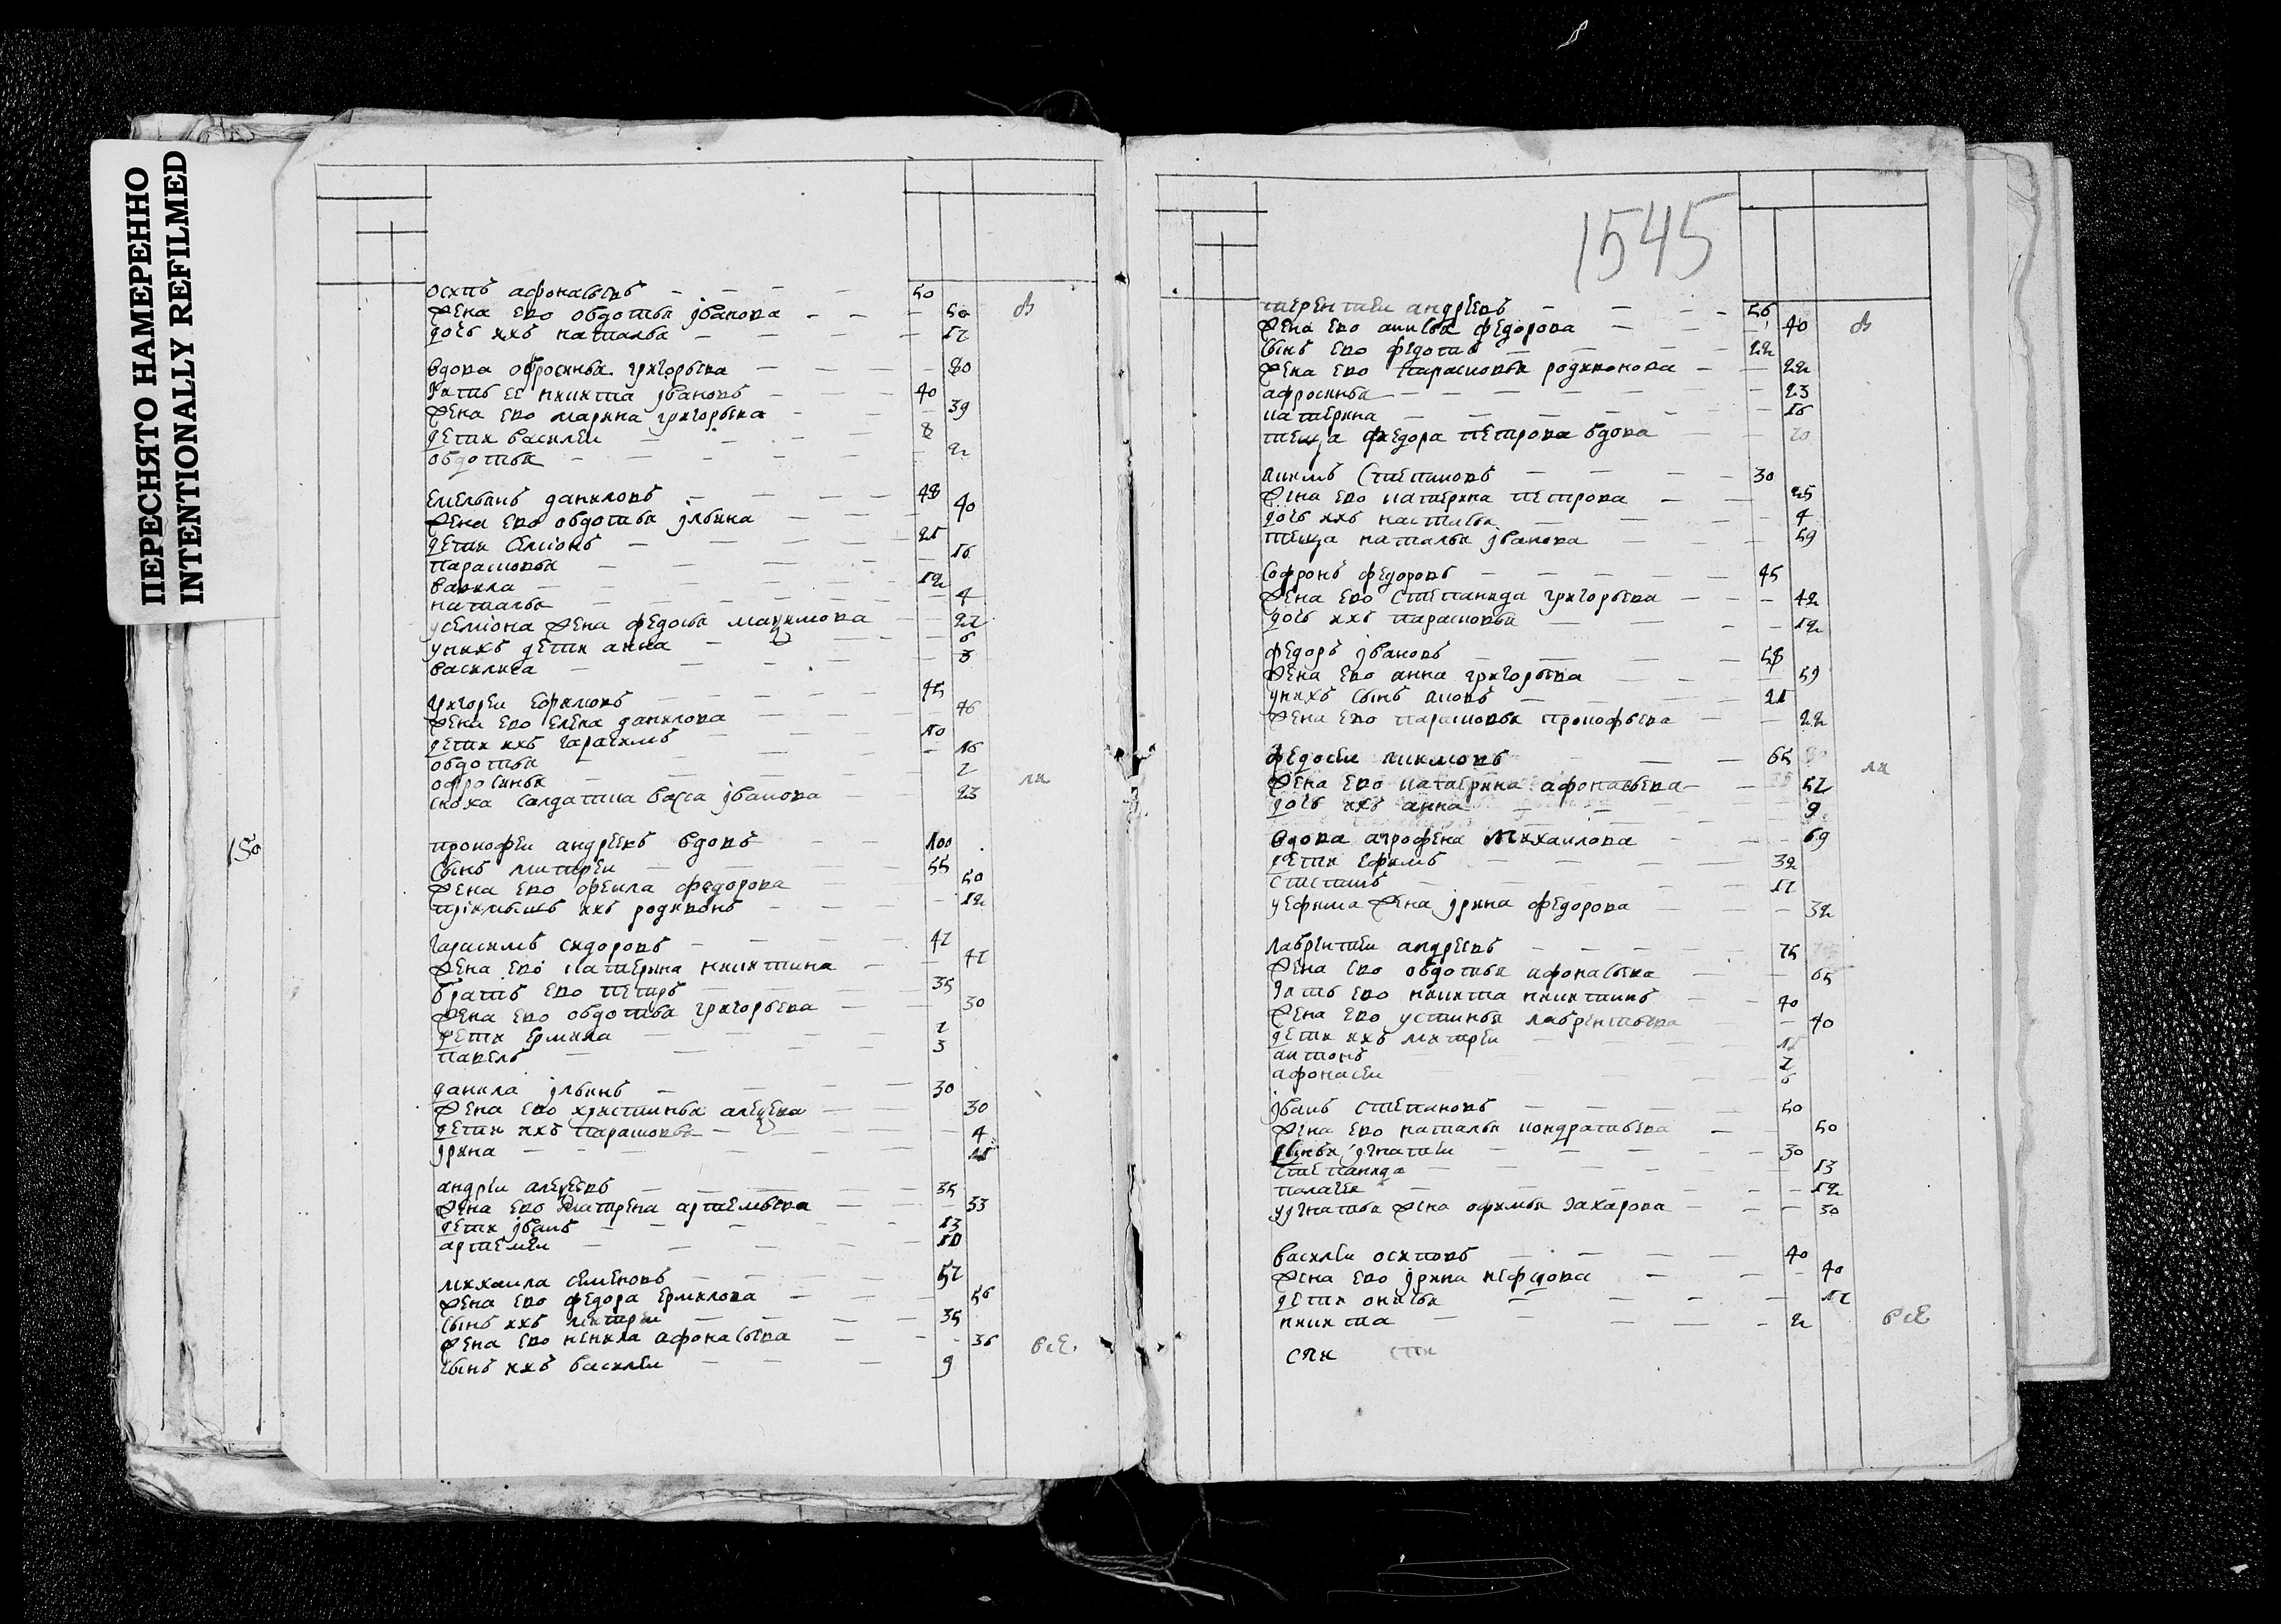 ПЕРЕСНЯТО НАМЕРЕННО
INTENTIONALLY REFILMED
150
осипъ афонасьевъ 50
жена ево овдотья ӏванова 50
дочь ихъ наталья 17
вдова офросинья григорьева 80
зять ее никита ӏвановъ 40
жена ево марина григорьева 39
дети василеи 8
овдотья 2
емельянъ даниловъ 48
жена ево овдотья ӏльина 40
дети семіонъ 21
парасковья 16
вавила 12
наталья 4
усеміона жена федосья максимова 27
унихъ дети анна 6
василиса 3
григореи ефимовъ 45
жена ево елена данилова 46
дети ихъ гарасимъ 10
овдотья 16
офросинья 7
сноха салдатка васса ӏванова 23
прокофеи андреевъ вдовъ 100
сынъ митреи 55
жена ево фекла федорова 50
пріимышъ ихъ родивонъ 12
гарасимъ сидоровъ 47
жена ево катерина никитина 47
братъ ево петръ 35
жена ево овдотья григорьева 30
дети ермила 7
павелъ 3
данила ӏльинъ 30
жена ево христинья алексеева 30
дети ихъ парасковья 4
ӏрина 11
андреи алексеевъ 35
жена ево матрена артемьева 33
дети ӏванъ 13
артемеи 10
михаила семеновъ 57
жена ево федора ермилова 56
сынъ ихъ митреи 35
жена ево ненила афонасьева 36
сынъ ихъ василеи 9
все.
1545
терентеи андреевъ 56
жена ево анисья федорова 40
сынъ ево федотъ 22
жена ево парасковья родивонова 22
афросинья 23
катерина 16
теща федора петрова вдова 70
акимъ степановъ 30
жена ево катерина петрова 25
дочь ихъ настасья 4
теща наталья ӏванова 59
софронъ федоровъ 45
жена ево степанида григорьева 42
дочь ихъ парасковья 12
федоръ ӏвановъ 58
жена ево анна григорьева 59
унихъ сынъ яковъ 21
жена ево парасковья прокофьева 22
федосеи акимовъ 65
жена ево катерина афонасьева 57
дочь ихъ анна 9
вдова агрофена михаилова 69
дети ефимъ 32
степанъ 17
уефима жена ӏрина федорова 32
лаврентеи андреевъ 75
жена ево овдотья афонасьева 65
зять ево никита никитинъ 40
жена ево устинья лаврентьева 40
дети ихъ митреи
антонъ 7
афонасеи 6
ӏванъ степановъ 50
жена ево наталья кондратьева 50
ӏгнатеи 30
степанида 13
палагея 12
уӏгнатья жена офимья захарова 30
василеи осиповъ 40
жена ево ӏрина нефедова 40
дети онисья 17
никита 2
все